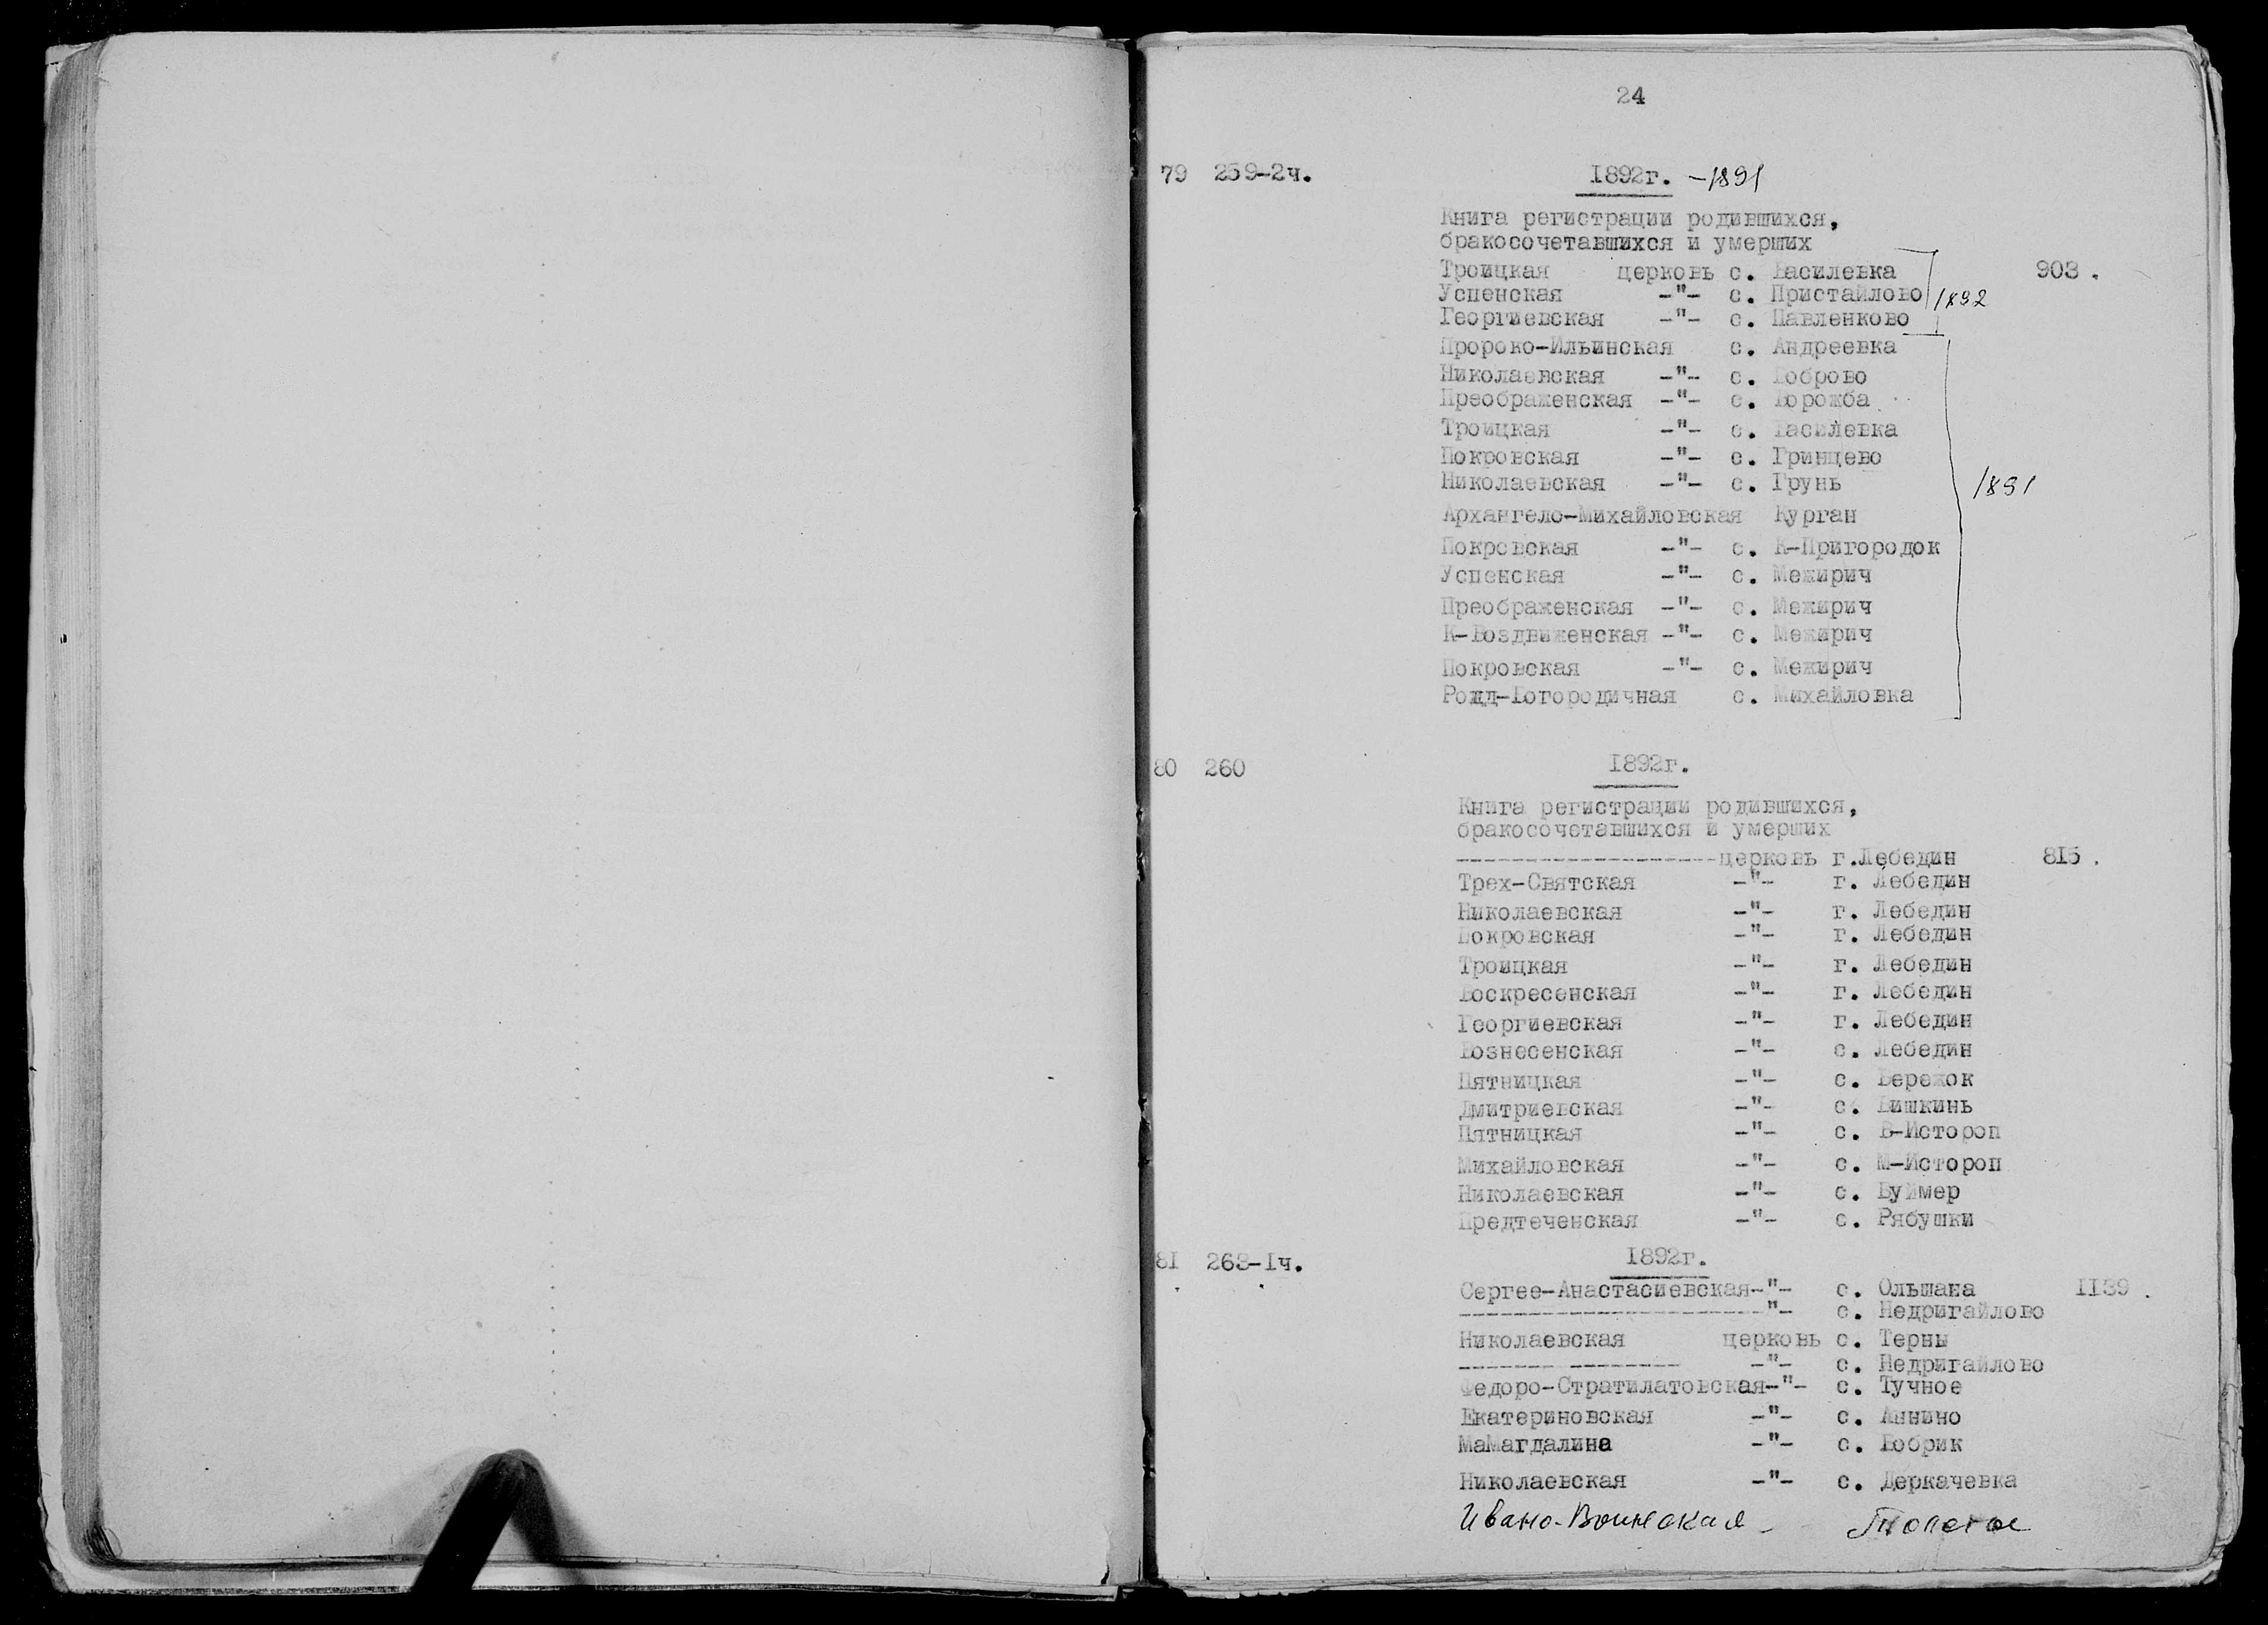 24
79 259-2ч. 1892г. -1891
Книга регистрации родившихся,
бракосочетавшихся и умерших
Троицкая церковь с. Василевка 903.
Успенская -"- с. Пристайлово 1892
Георгиевская -"- с. Павленково
Пророко-Ильинская с. Андреевка
Николаевская -"- с. Боброво
Преображенская -"- с. Ворожба
Троицкая -"- с. Василевка
Покровская -"- с. Гринцево
Николаевская -"- с. Грунь 1891
Архангело-Михайловская Курган
Покровская -"- с. К-Пригородок
Успенская -"- с. Межирич
Преображенская -"- с. Межирич
К-Воздвиженская -"- с. Межирич
Покровская -"- с. Межирич
Рожд-Богородичная с. Михайловка
80 260 1892г.
Книга регистрации родившихся,
бракосочетавшихся и умерших
-------------------церковь г.Лебедин 815.
Трех-Святская -"- г. Лебедин
Николаевская -"- г. Лебедин
Покровская -"- г. Лебедин
Троицкая -"- г. Лебедин
Воскресенская -"- г. Лебедин
Георгиевская -"- г. Лебедин
Вознесенская -"- с. Лебедин
Пятницкая -"- с. Бережок
Дмитриевская -"- с. Бишкинь
Пятницкая -"- с. В-Истороп
Михайловская -"- с. М-Истороп
Николаевская -"- с. Буймер
Предтеченская -"- с. Рябушки
81 263-1ч. 1892г.
Сергее-Анастасиевская-"- с. Ольшана 1139.
----------------------"- с. Недригайлово
Николаевская церковь с. Терны
------- -------- -"- с. Недригайлово
Федоро-Стратилатовская-"- с. Тучное
Екатериновская -"- с. Аннино
МаМагдалина -"- с. Бобрик
Николаевская -"- с. Деркачевка
Ивано-Воинская - Толстое